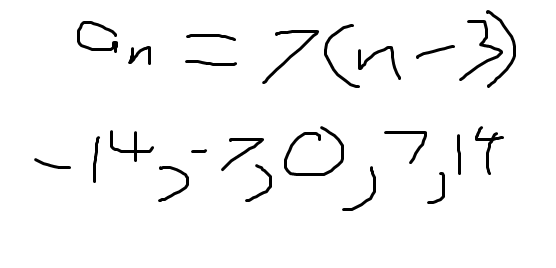 aₙ = 7(n-3)
-14, -7, 0, 7, 14